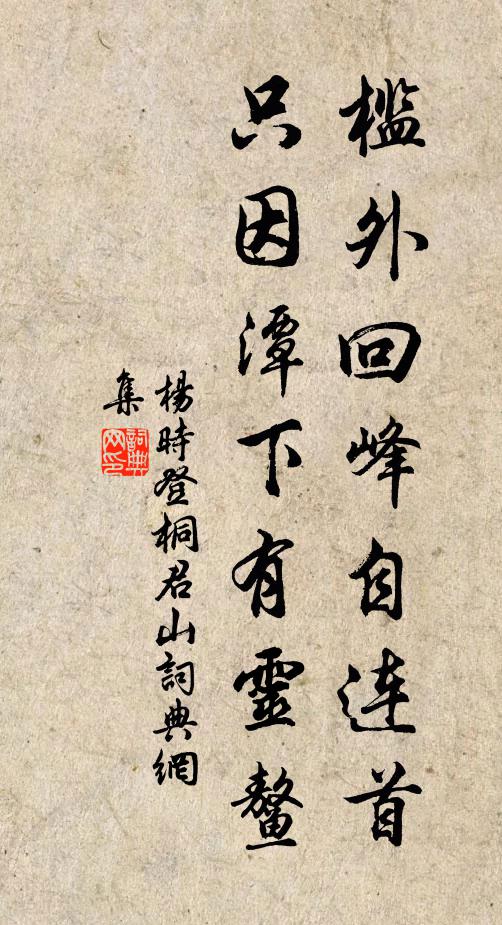 檻外回峰自連首
只因潭下有靈鰲
楊時登桐君山詞典網
集
詞典
网印